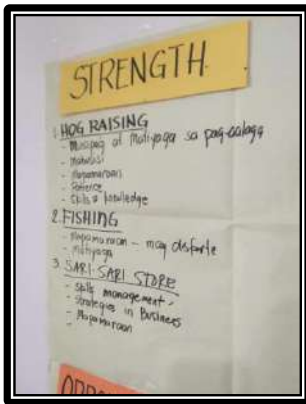 STRENGTH
1. HOG RAISING
- Masipag at Matiyaga sa pag-aalaga
- Mabusisi
- Mapamaraan
- Patience
- Skills & knowledge
2. FISHING
- Mapamaraan - may diskarte
- Matiyaga
3. SARI-SARI STORE
- Skills management
- Strategies in Business
- Mapamaraan
-
OPPO